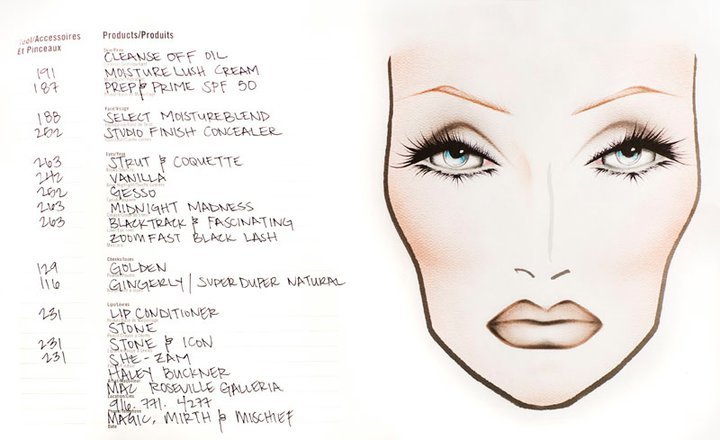 Tool/Accessoires Products/Produits
Et Pinceaux
CLEANSE OFF OIL
191 MOISTURELUSH CREAM
187 PREP & PRIME SPF 50
188 SELECT MOISTUREBLEND
252 STUDIO FINISH CONCEALER
263 STRUT & COQUETTE
242 VANILLA
252 GESSO
263 MIDNIGHT MADNESS
263 BLACKTRACK & FASCINATING
ZOOMFAST BLACK LASH
129 GOLDEN
116 GINGERLY/SUPER DUPER NATURAL
231 LIP CONDITIONER
STONE
231 STONE & ICON
231 SHE-ZAM
HALEY BUCKNER
MAC ROSEVILLE GALLERIA
916.771.4277
MAGIC, MIRTH & MISCHIEF
Date